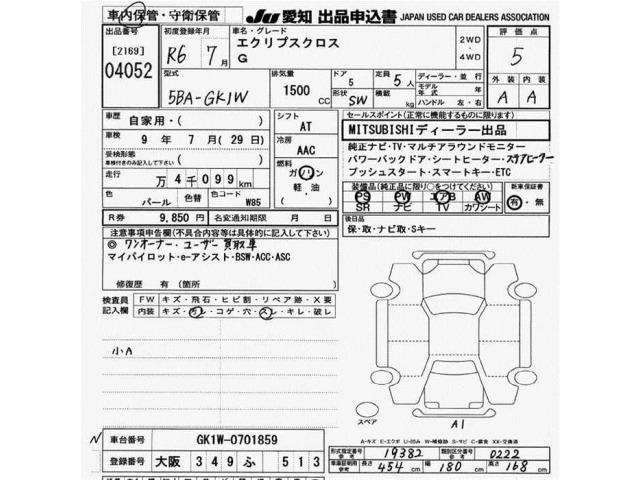 車内保管・守衛保管
JU 愛知 出品申込書 JAPAN USED CAR DEALERS ASSOCIATION
出品番号 [2169] 04052
初度登録年月 R6 7月
車名・グレード エクリプスクロス G
2WD・4WD
評価点 5
型式 5BA-GK1W
排気量 1500 CC
ドア 5
形状 SW
定員 5人
積載 kg
ディーラー・並行
モデル年式 年
ハンドル 左・右
外装 A
内装 A
車歴 自家用・( )
車検 9年 7月(29日)
受検形態 車検付きのみ記入して下さい ( )
走行 万4千099km
色 パール 色替 色コード W85
シフト AT
冷房 AAC
燃料 ガソリン・軽油 ( )
セールスポイント(正常に機能するものに限ります)
MITSUBISHIディーラー出品
純正ナビ・TV・マルチアラウンドモニター
パワーバックドア・シートヒーター・ステアヒーター
プッシュスタート・スマートキー・ETC
装備品(純正品に限り○をつけてください)
PS PW エアB AW
SR ナビ TV カワシート
新車保証書 有・無
R券 9,850円 名変通知期限 月 日
後日品
保・取・ナビ取・Sキー
注意事項申告欄(不具合内容等は具体的に記入して下さい)
◎ ワンオーナー・ユーザー買取車
マイパイロット・e-アシスト・BSW・ACC・ASC
修復歴 有(箇所 )
検査員記入欄
FW キズ・飛石・ヒビ割・リペア跡・X要
内装 キズ・汚レ・コゲ・穴・スレ・キレ・破レ
小A
スペア
A1
A-キズ E-エクボ U-凹み W-補修跡 S-サビ C-腐食 XX-交換済
車台番号 GK1W-0701859
登録番号 大阪 349 ふ 513
形式指定番号 参考 19382
類別区分番号 参考 0222
車検証明用 参考 長さ 454 cm 幅 180 cm 高さ 168 cm